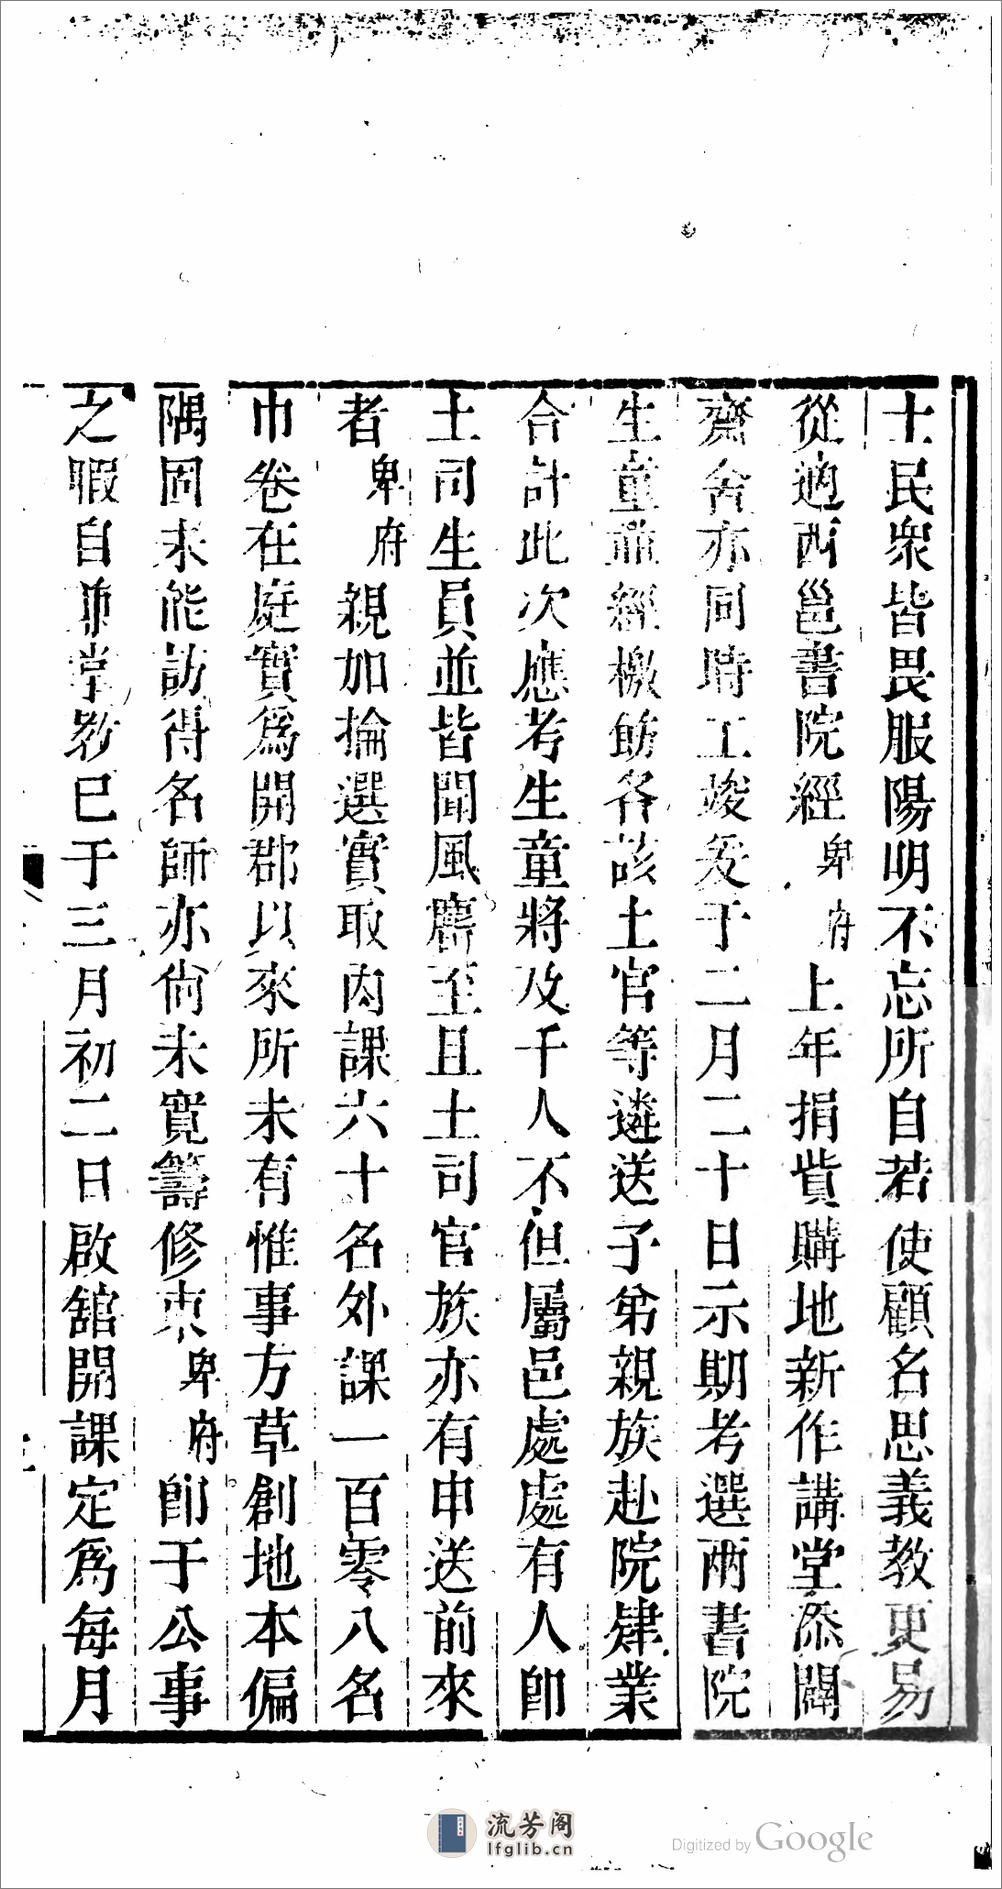 士民衆皆畏服陽明不忘所自若使顧名思義教更易
從適西邕書院經卑府上年捐貲購地新作講堂添闢
齋舍亦同時工竣爰于二月二十日示期考選兩書院
生童並經檄飭各該土官等遴送子弟親族赴院肄業
合計此次應考生童將及千人不但屬邑處處有人卽
土司生員並皆聞風麕至且土司官族亦有申送前來
者卑府親加掄選實取內課六十名外課一百零八名
巾卷在庭實爲開郡以來所未有惟事方草創地本偏
隅固未能訪得名師亦尙未寬籌修束卑府卽于公事
之暇自兼掌教已于三月初二日啟舘開課定爲每月
流芳阁
lfglib.cn
Digitized by Google